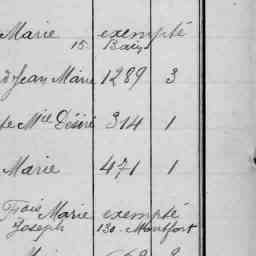 Marie exempté
15 Bain
d'Jean Marie 1289 3
Mie Désiré 314 1
Marie 471 1
Frois Marie exempté
Joseph 130. Montfort